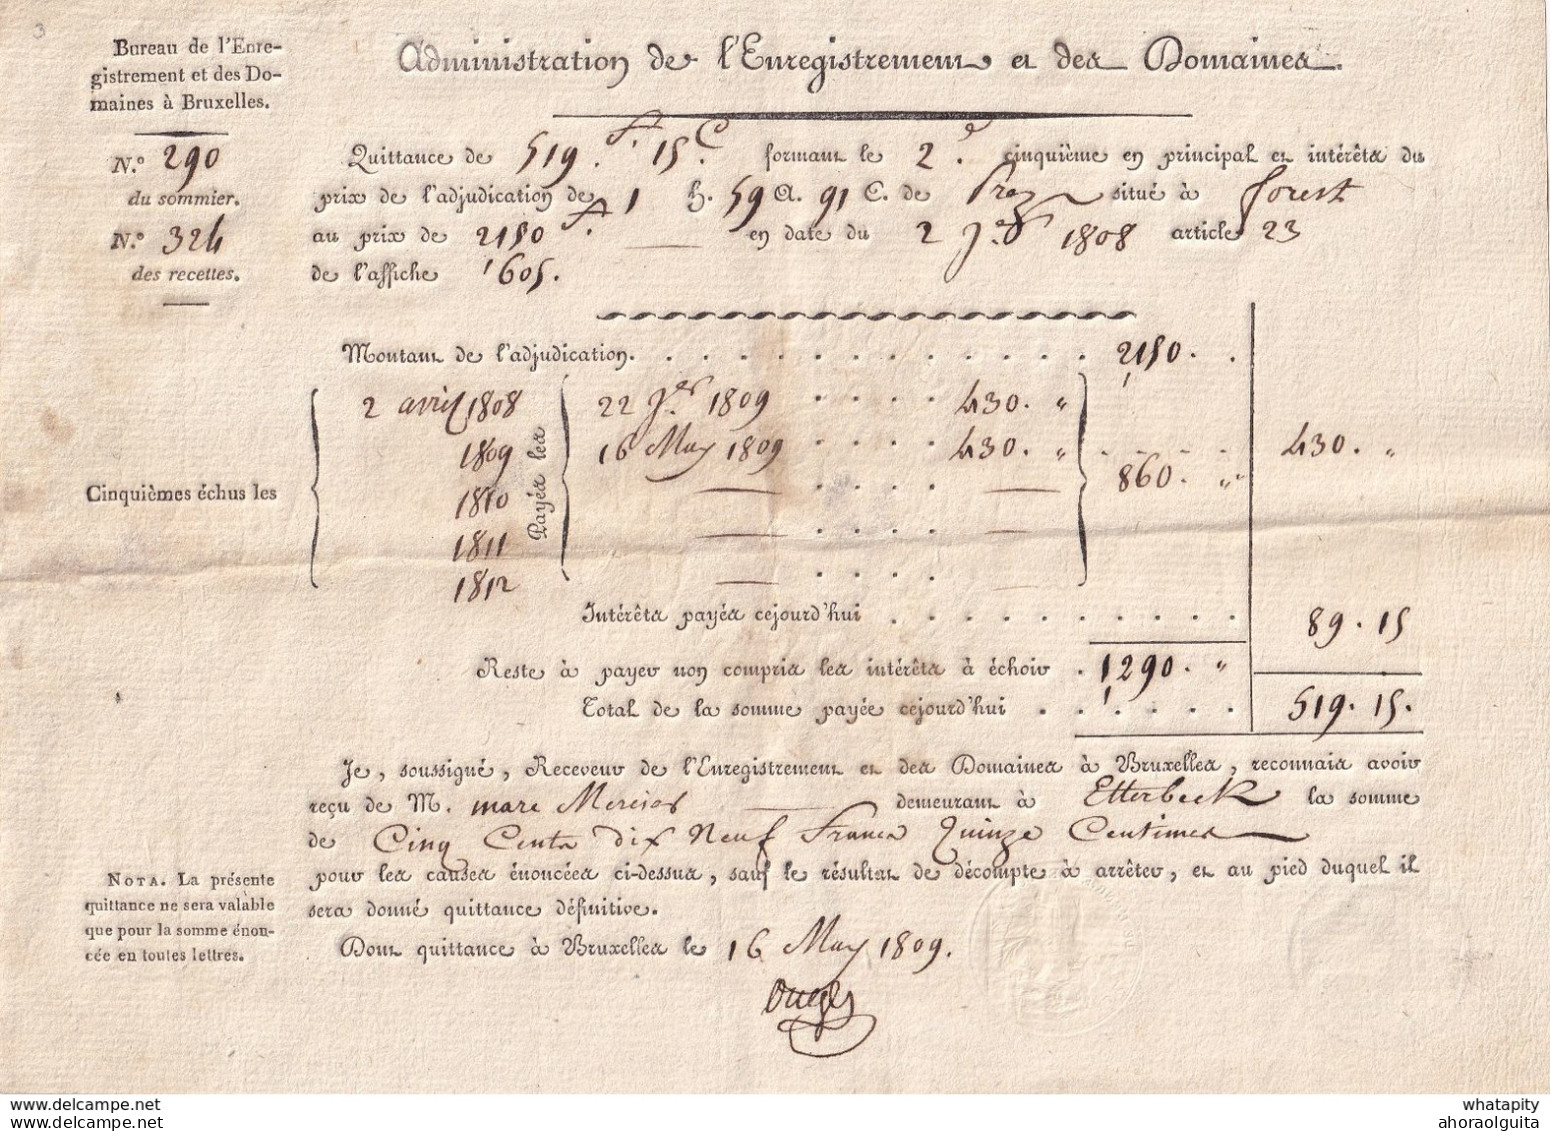 3
Bureau de l'Enre-
gistrement et des Do-
maines à Bruxelles.
N.° 290
du sommier.
N.° 324
des recettes.
Administration de l'Enregistrement et des Domaines.
Quittance de 519 fr. 15 C. formant le 2.e cinquième en principal et intérêts du
prix de l'adjudication de 1 h. 59 a. 91 C. de Prez situé à forest
au prix de 2150 fr. en date du 2 J.er 1808 article 23
de l'affiche 1605.
Montant de l'adjudication. 2150.
Cinquièmes échus les
Payés les
2 avril 1808 22 J.er 1809 430. "
1809 16 May 1809 430. " 430. "
1810 860. "
1811
1812
Intérêts payés cejourd'hui 89.15
Reste à payer non compris les intérêts à échoir 1290. "
Total de la somme payée cejourd'hui 519.15.
Je, soussigné, Receveur de l'Enregistrement et des Domaines à Bruxelles, reconnais avoir
reçu de M. marc demeurant à Etterbeek la somme
de Cinq Cents dix Neuf Francs Quinze Centimes
pour les causes énoncées ci-dessus, sauf le résultat de décompte à arrêter, et au pied duquel il
sera donné quittance définitive.
Dont quittance à Bruxelles le 16 May 1809.
NOTA. La présente
quittance ne sera valable
que pour la somme énon-
cée en toutes lettres.
Delcampe.net
whatapity
ahoraolguita